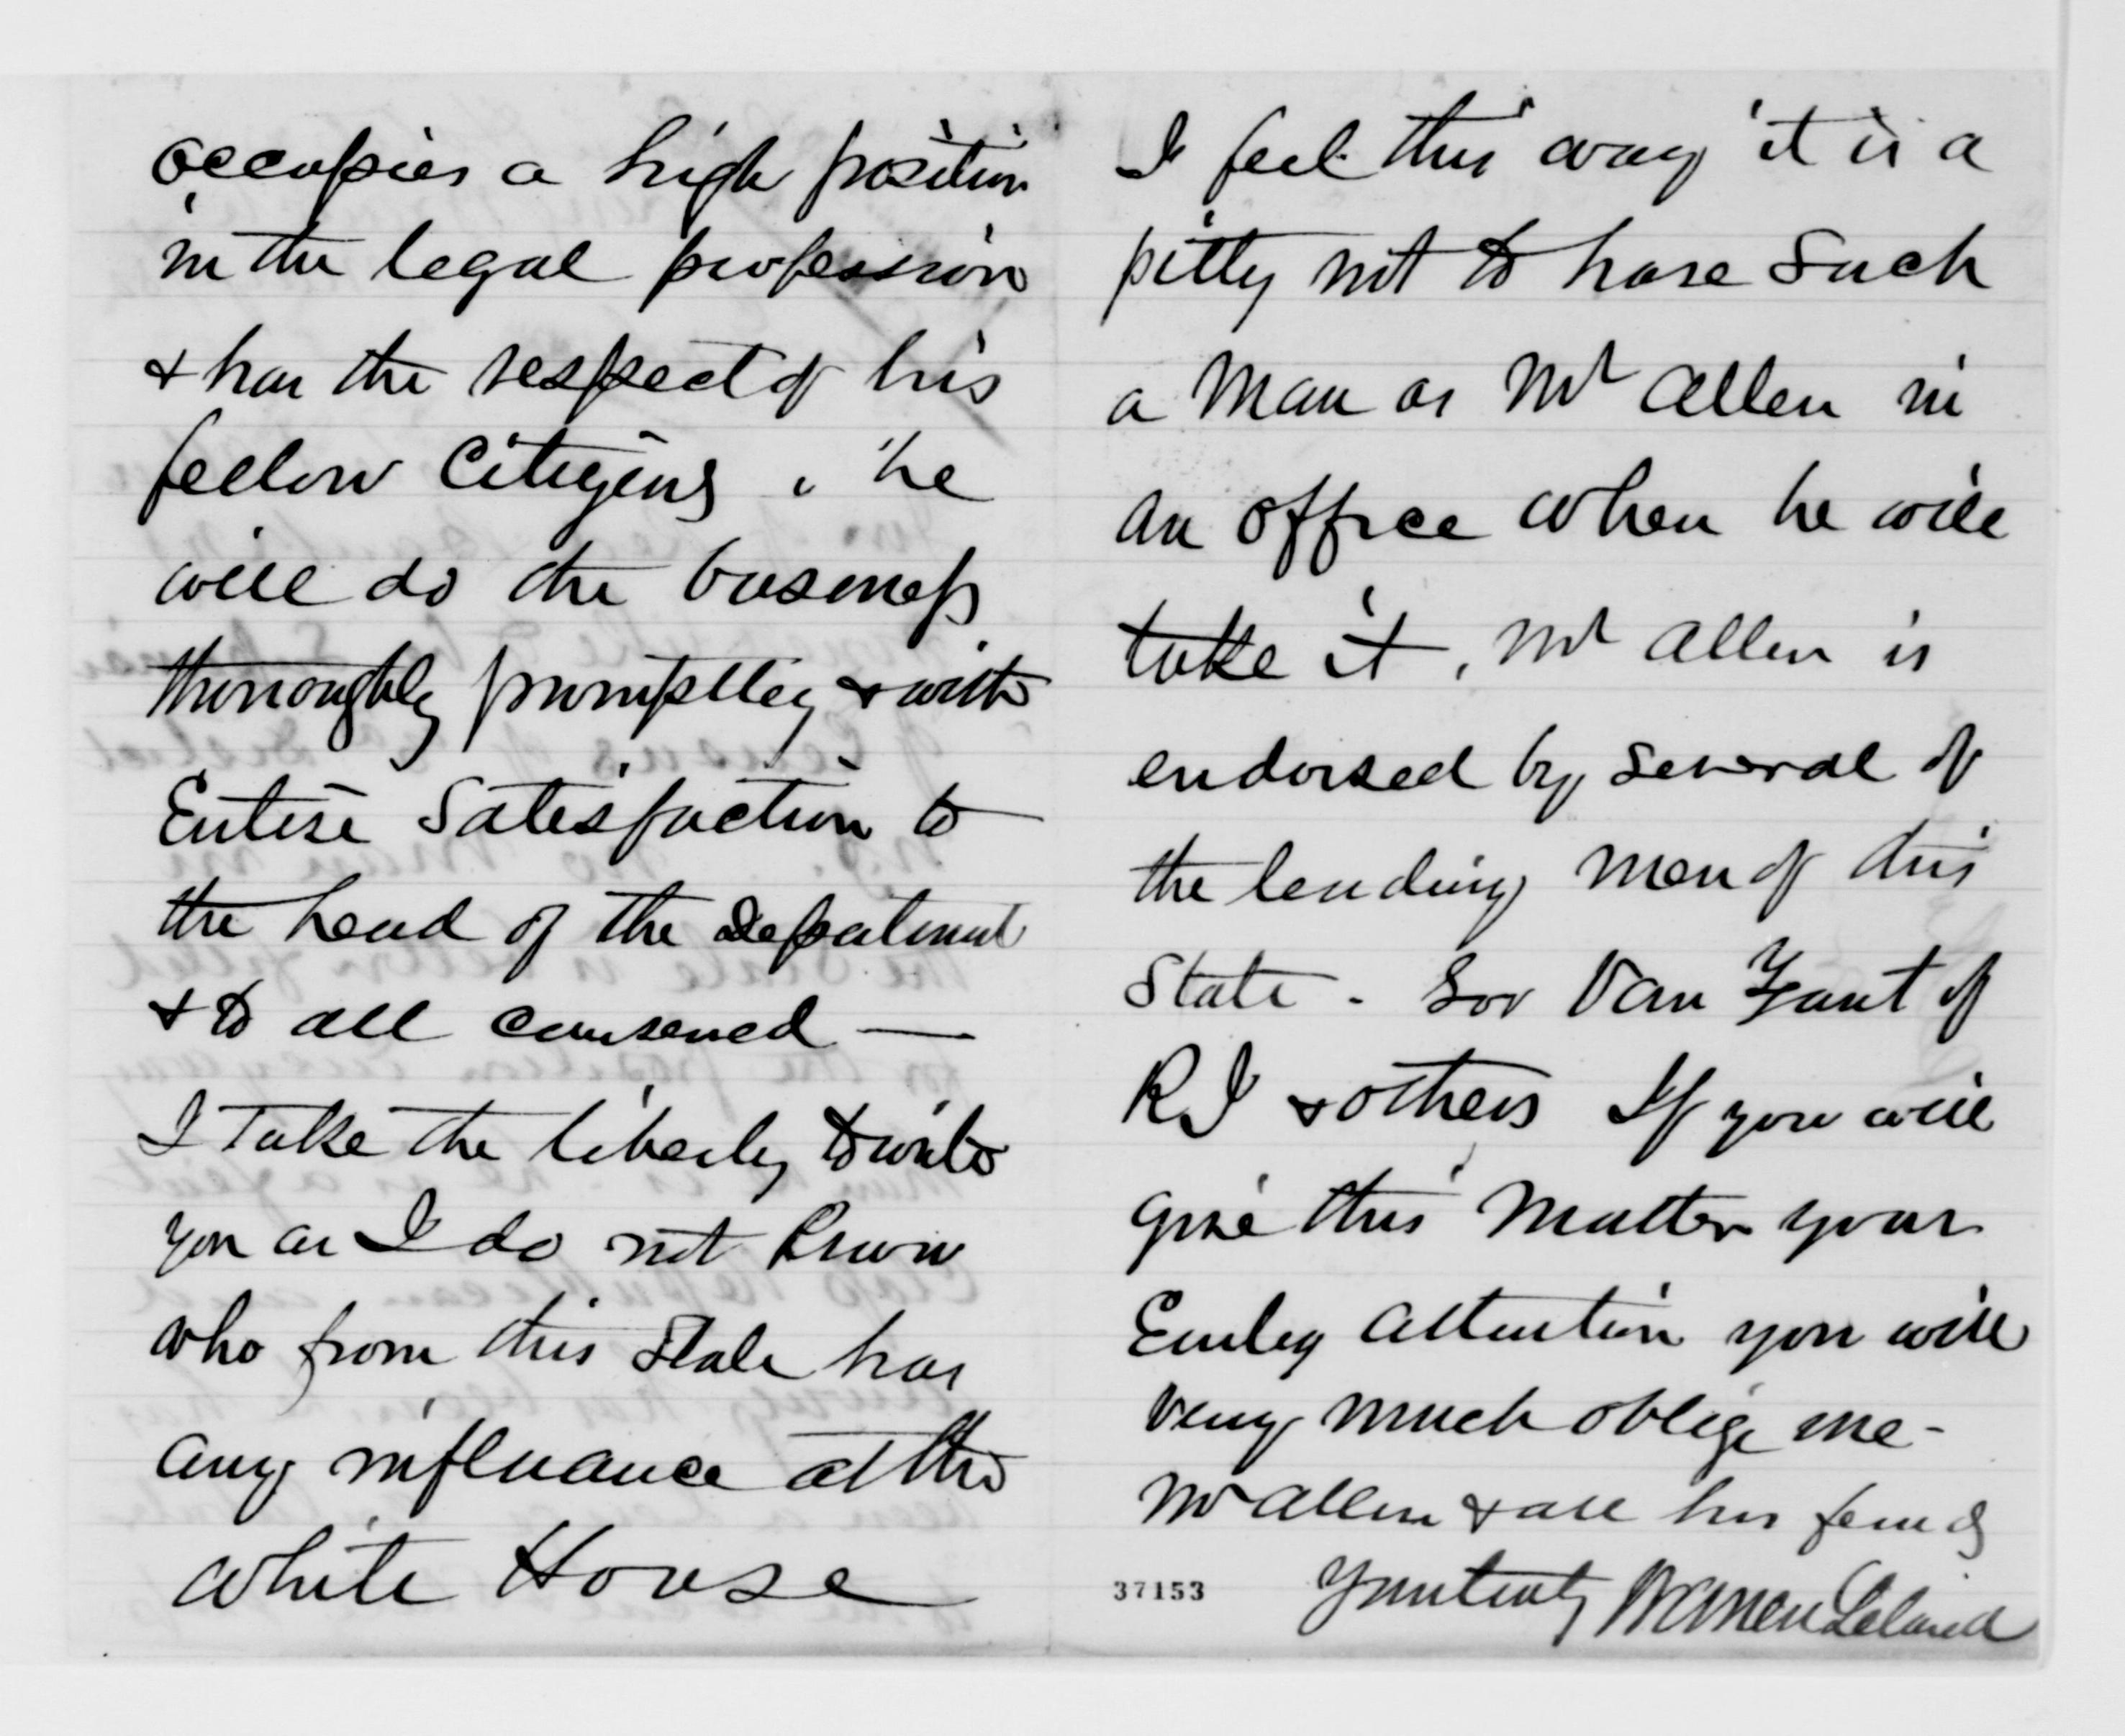 occupies a high position
in the legal profession
& has the respect of his
fellow Citizens, he
will do the business
thorroughly promptley & with
Entire Satisfaction to
the head of the Department
& to all concerned —
I Take the liberty to write
you as I do not Know
who from this State has
any influance at the
White House
I feel this way it is a
pitty not to have Such
a Man as Mr Allen in
an office when he will
take it, Mr Allen is
endorsed by Several of
the leading Men of this
State - Gov Van Zant of
R I & others If you will
give this Matter your
Early Attention you will
very much oblige me -
Mr Allen & all his friends
37153 Yours truly Warren Leland